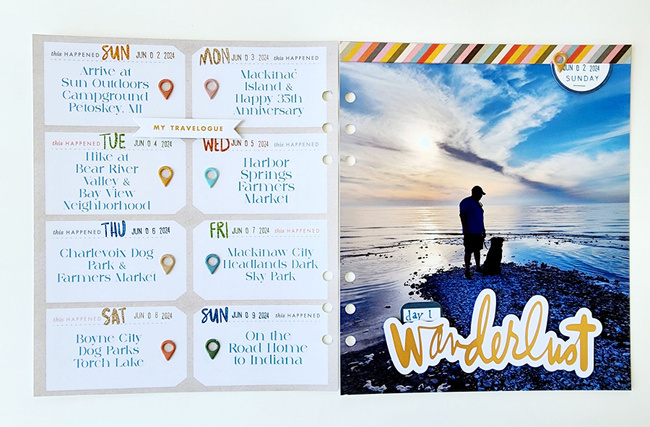 this HAPPENED SUN JUN 0 2 2024
Arrive at
Sun Outdoors
Campground
Petoskey, MI
MON JUN 0 3 2024 this HAPPENED
Mackinac
Island &
Happy 35th
Anniversary
MY TRAVELOGUE
this HAPPENED TUE JUN 0 4 2024
Hike at
Bear River
Valley &
Bay View
Neighborhood
WED JUN 0 5 2024 this HAPPENED
Harbor
Springs
Farmers
Market
this HAPPENED THU JUN 0 6 2024
Charlevoix Dog
Park &
Farmers Market
FRI JUN 0 7 2024 this HAPPENED
Mackinaw City
Headlands Dark
Sky Park
this HAPPENED SAT JUN 0 8 2024
Boyne City
Dog Parks
Torch Lake
SUN JUN 0 9 2024 this HAPPENED
On the
Road Home
to Indiana
JUN 0 2 2024
SUNDAY
day 1
wanderlust